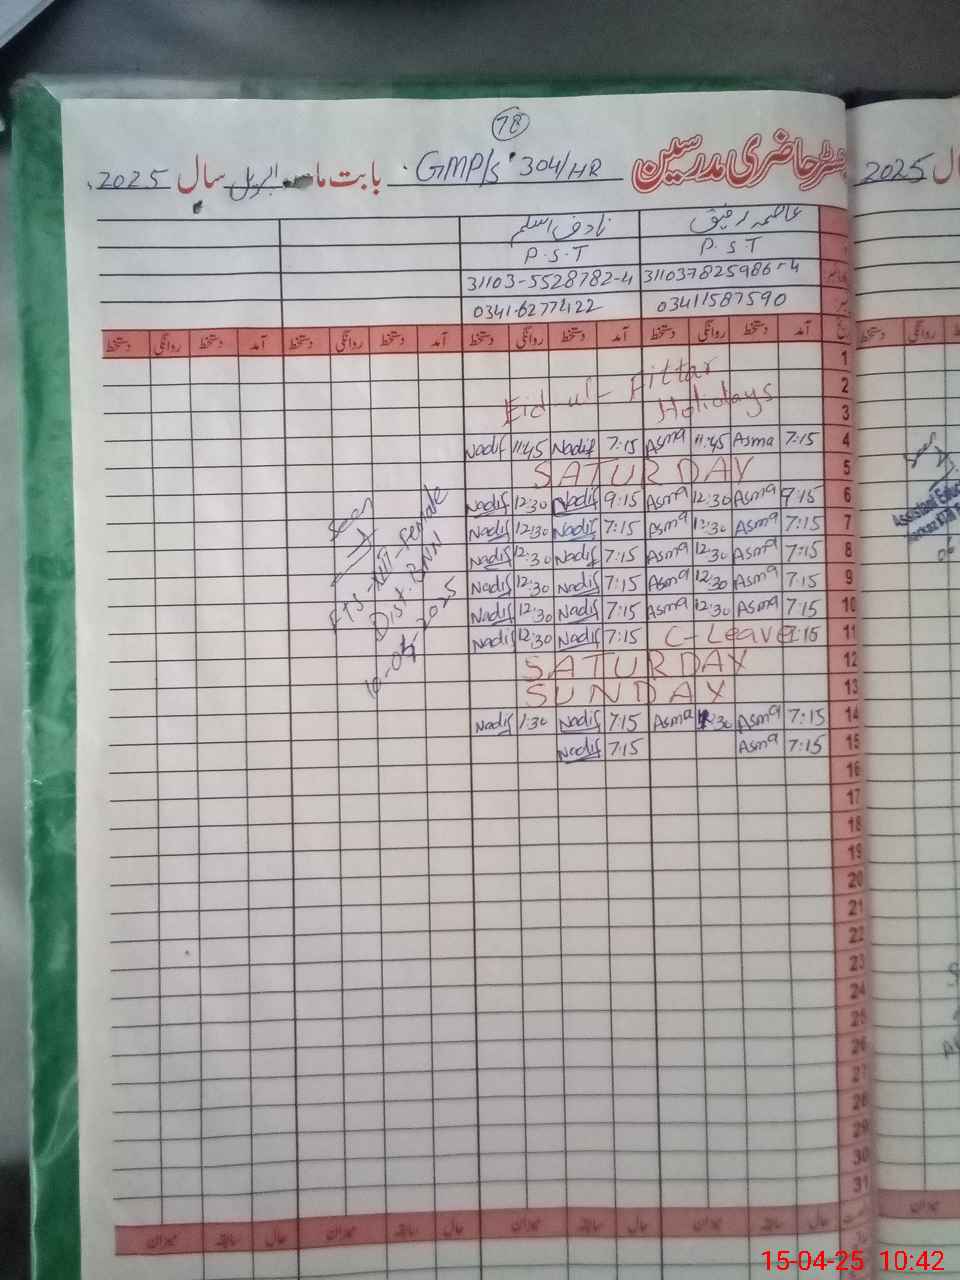 78
رجسٹر حاضری مدرسین GMP/S 304/HR بابت ماہ اپریل سال 2025
2025
عاصمہ رفیق نادف اسلم
P.S.T P.S.T
311037825986-4 31103-5528782-4
03411587590 0341-6277422
آمد دستخط روانگی دستخط آمد دستخط روانگی دستخط آمد دستخط روانگی دستخط آمد دستخط روانگی دستخط
1
2 Eid ul-Fittar
3 Holidays
4 7:15 Asma 11:45 Asma 7:15 Nadif 11:45 Nadif
5 SATURDAY
6 9:15 Asma 12:30 Asma 9:15 Nadif 12:30 Nadif
7 7:15 Asma 12:30 Asma 7:15 Nadif 12:30 Nadif
8 7:15 Asma 12:30 Asma 7:15 Nadif 12:30 Nadif
9 7:15 Asma 12:30 Asma 7:15 Nadif 12:30 Nadif
10 7:15 Asma 12:30 Asma 7:15 Nadif 12:30 Nadif
11 C-Leave 7:15 Nadif 12:30 Nadif
12 SATURDAY
13 SUNDAY
14 7:15 Asma 1:30 Asma 7:15 Nadif 1:30 Nadif
15 7:15 Asma 7:15 Nadif
16
17
18
19
20
21
22
23
24
25
26
27
28
29
30
31
Seen
Female
Dist.
2025
Seen
حال سابقہ میزان حال سابقہ میزان حال سابقہ میزان حال سابقہ میزان
15-04-25 10:42